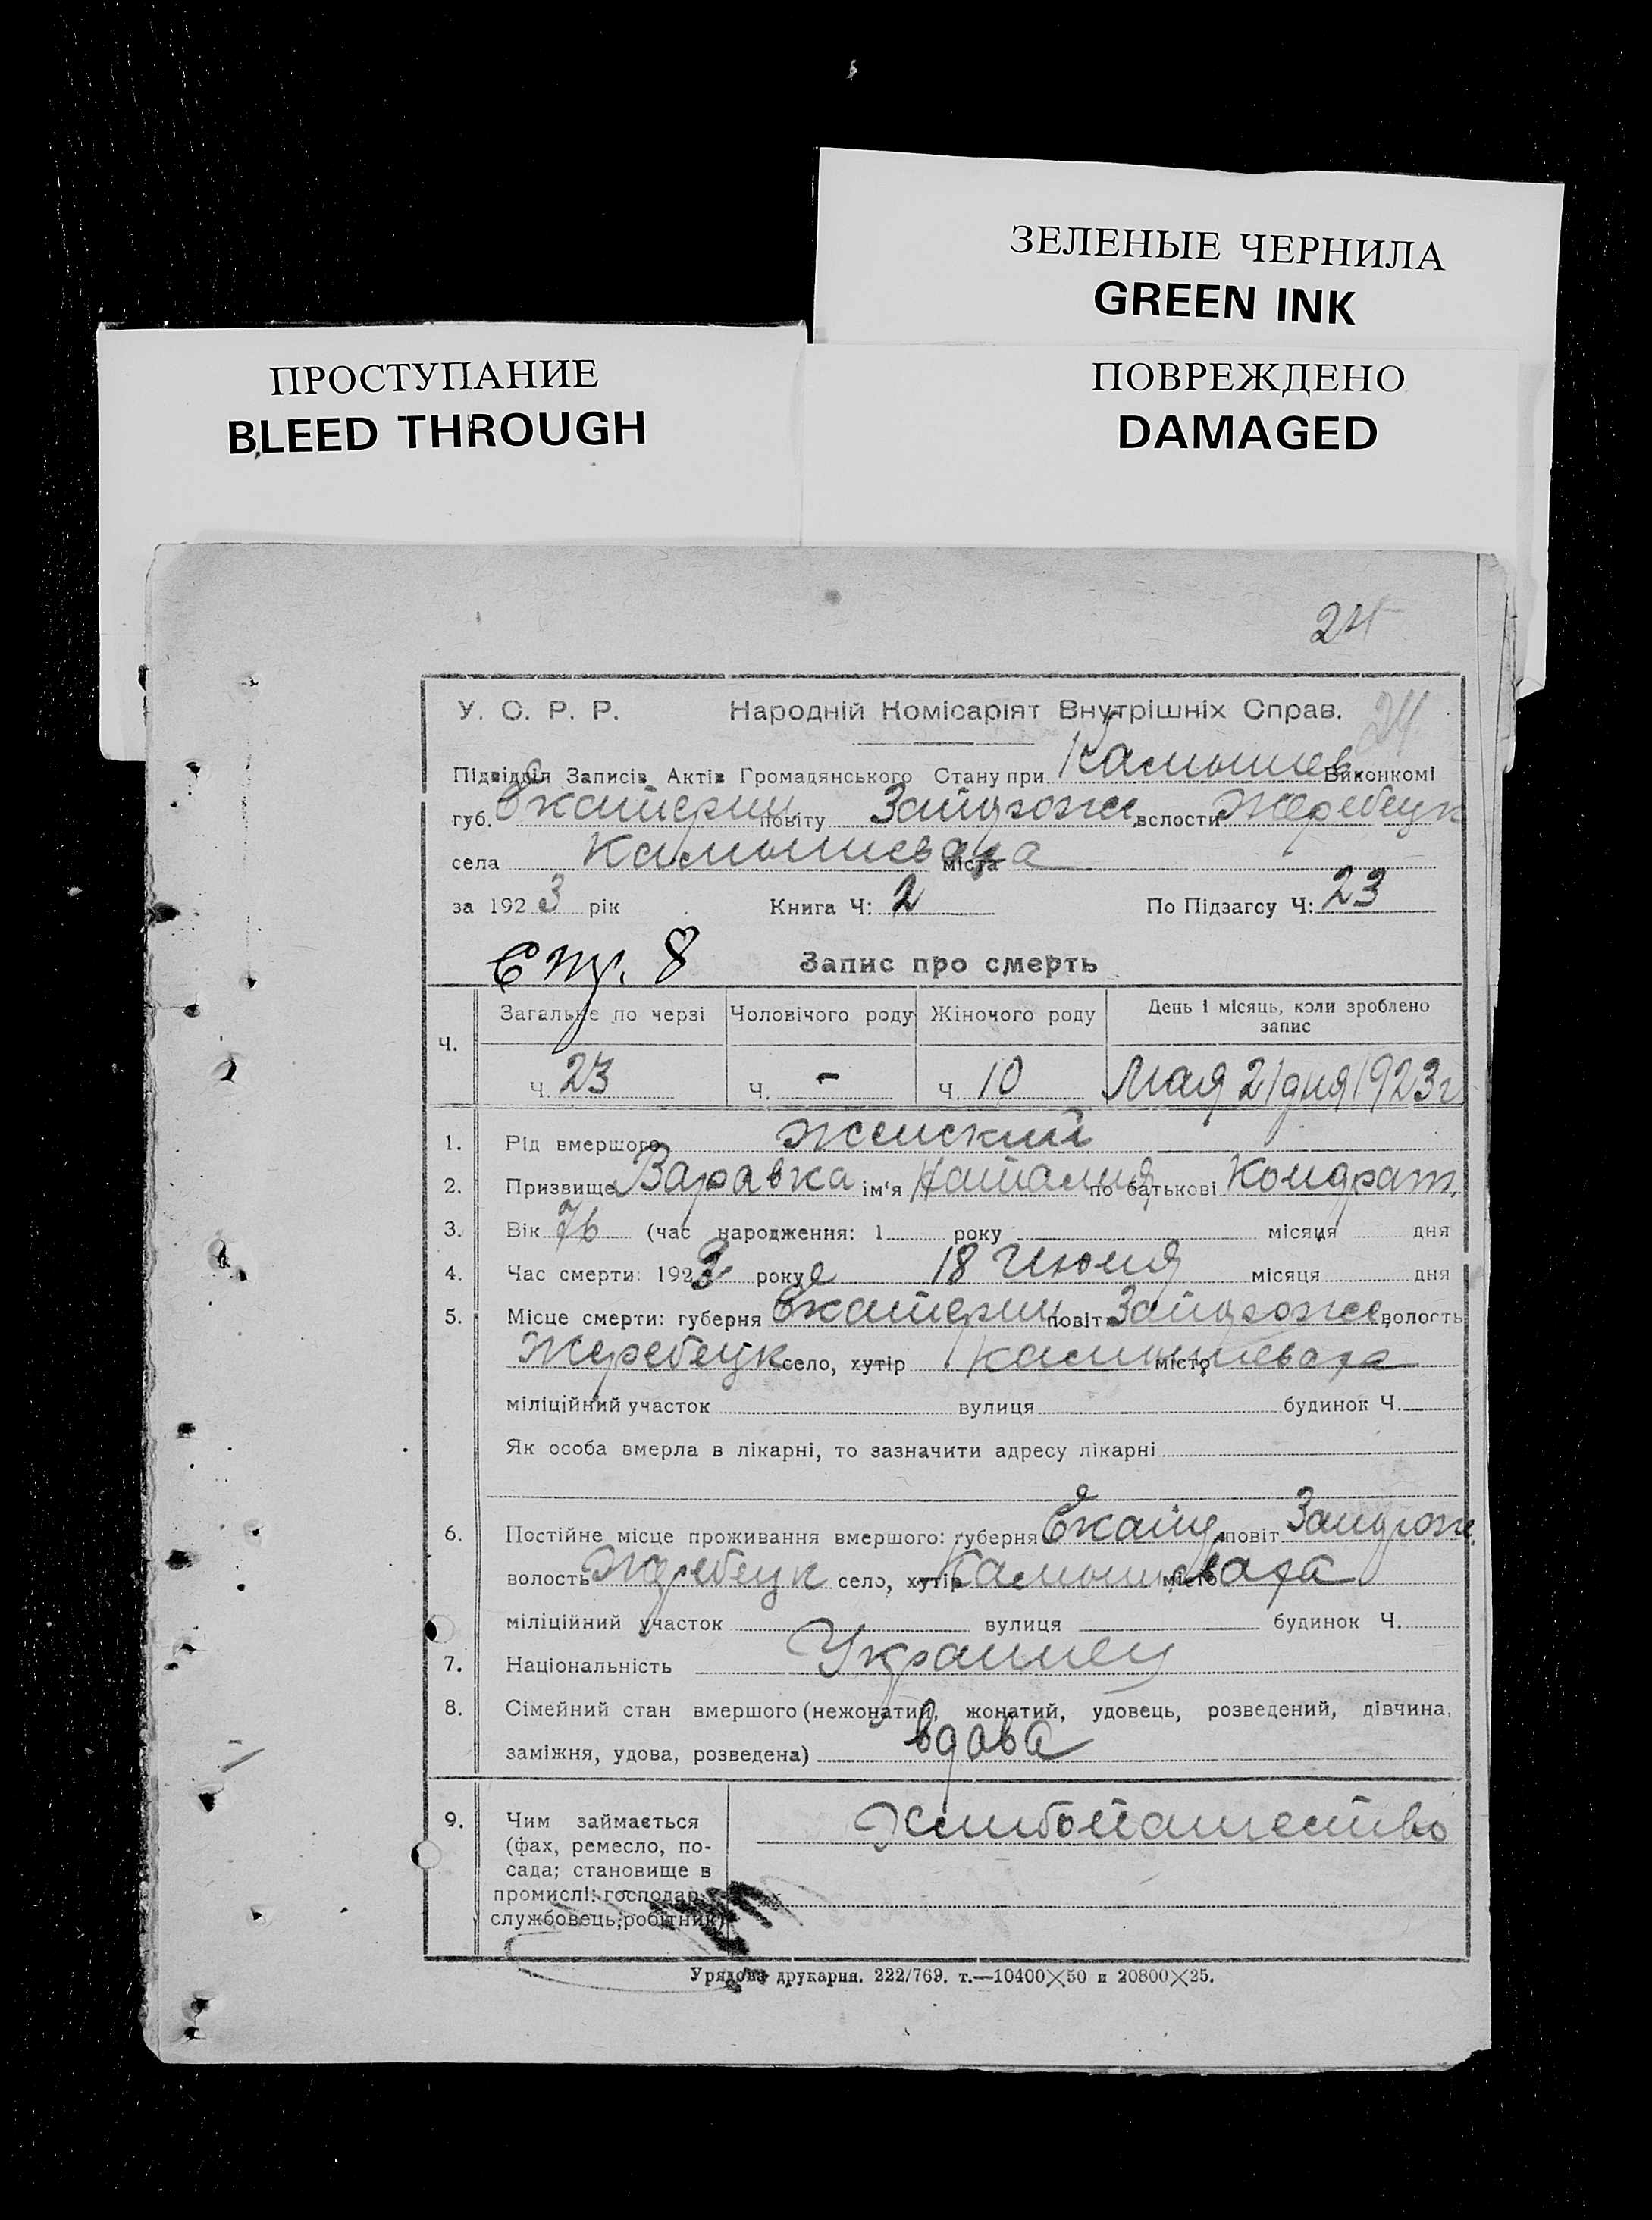 ЗЕЛЕНЫЕ ЧЕРНИЛА
GREEN INK
ПРОСТУПАНИЕ
BLEED THROUGH
ПОВРЕЖДЕНО
DAMAGED
24
У. С. Р. Р. Народній Комісаріят Внутрішніх Справ. 24
Підвідділ Записів Актів Громадянського Стану при Камышев. Виконкомі
губ. Екатерин. повіту Запорож. вслости Жеребецк
села Камышеваха міста
за 1923 рік Книга Ч: 2 По Підзагсу Ч: 23
Запис про смерть
Ч. Загальне по черзі Чоловічого роду Жіночого роду День і місяць, коли зроблено запис
Ч. 23 Ч. - Ч. 10 Мая 21 дня 1923 г
1. Рід вмершого женский
2. Призвище Варавка ім'я Наталия по батькові Кондрат.
3. Вік 76 (час народження: 1 року місяця дня
4. Час смерти: 192 року 18 Июня місяця дня
5. Місце смерти: губерня Екатерин повіт Запорож волость
Жеребецк село, хутір Камышеваха місто
міліційний участок вулиця будинок Ч.
Як особа вмерла в лікарні, то зазначити адресу лікарні
6. Постійне місце проживання вмершого: губерня Екат. повіт Запорож.
волость Жеребецк село, хутір Камышеваха місто
міліційний участок вулиця будинок Ч.
7. Національність Украинец
8. Сімейний стан вмершого (нежонатий, жонатий, удовець, розведений, дівчина,
заміжня, удова, розведена) вдова
9. Чим займається Хлибопашество
(фах, ремесло, по-
сада; становище в
промислі: господар,
службовець; робітник)
Урядова друкарня. 222/769. т.—10400×50 и 20800×25.